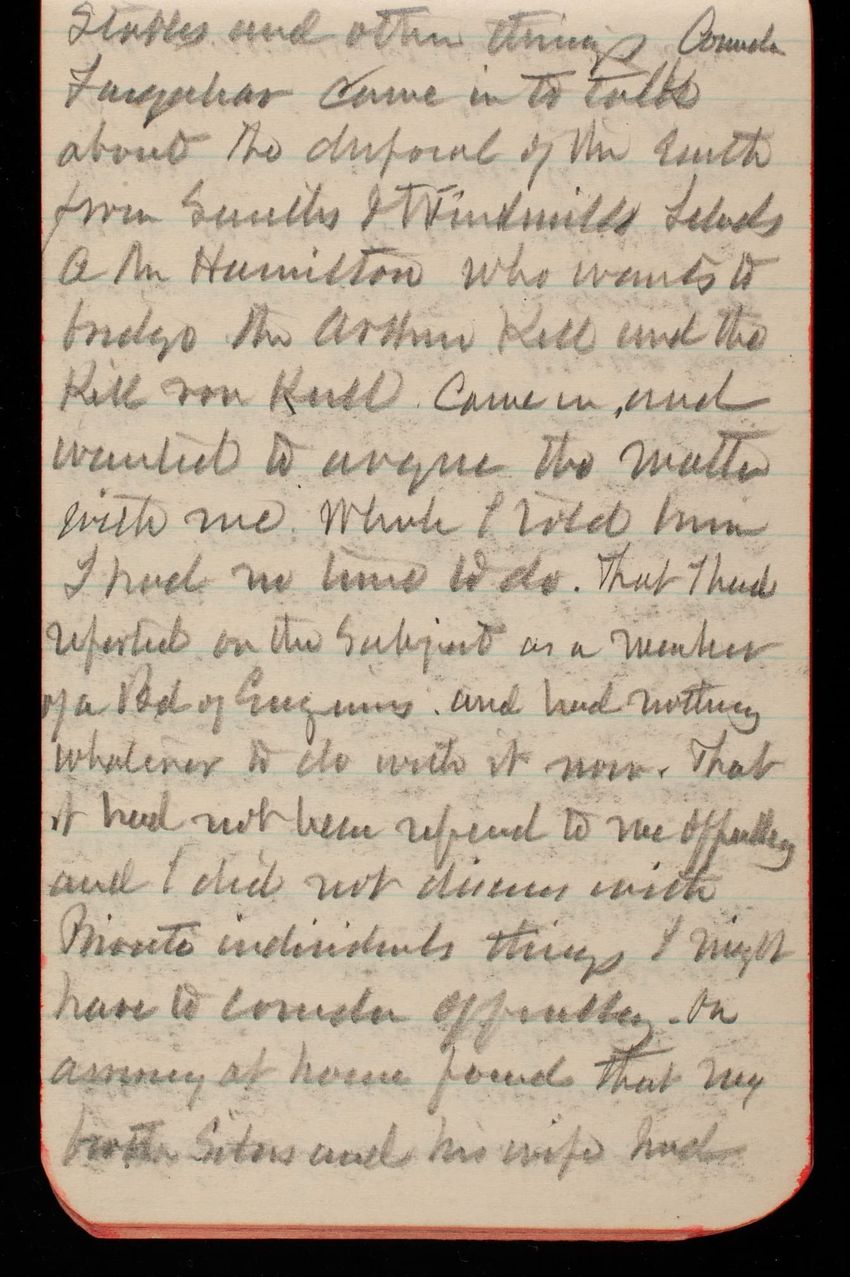 Stables and other things Comdr
Farquhar came in to talk
about the disposal of the Earth
from Smiths & Windmills Islands
A Mr Hamilton who wants to
bridge the Arthur Kill and the
Kill von Kull. Came in, and
wanted to argue the matter
with me. Which I told him
I had no time to do. That I had
reported on the Subject as a member
of a Bd of Engineers. and had nothing
whatever to do with it now. That
it had not been referred to me Officially
and I did not discuss with
Private individuals things I might
have to consider Officially. On
arriving at home found that my
brother Silas and his wife had